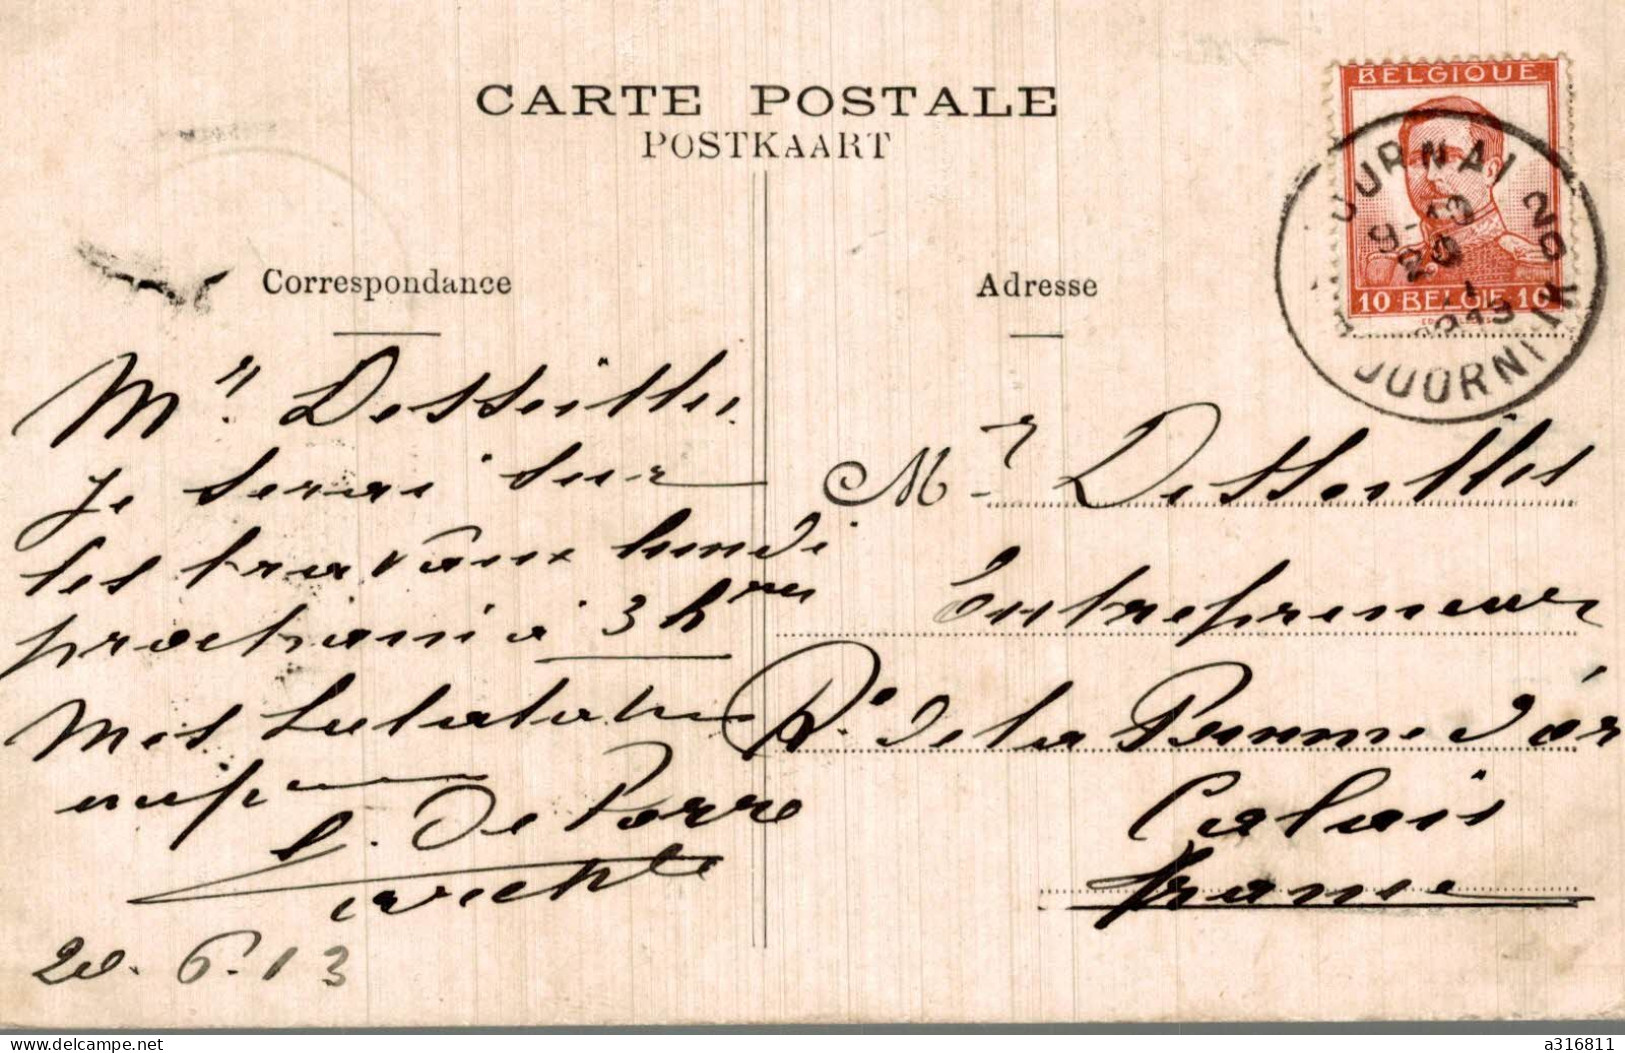 CARTE POSTALE
POSTKAART
BELGIQUE
10 BELGIE 10
OURNAI
9-13
20
1913
DOORNIK
Correspondance
Adresse
Mr. Desseilles
Je serai sur
les travaux lundi
prochain à 3 hres
Mes salutations
De Porre
20.6.13
Mr Desseilles
Entrepreneur
R. de la Pomme d'or
Calais
France
www.delcampe.net
a316811